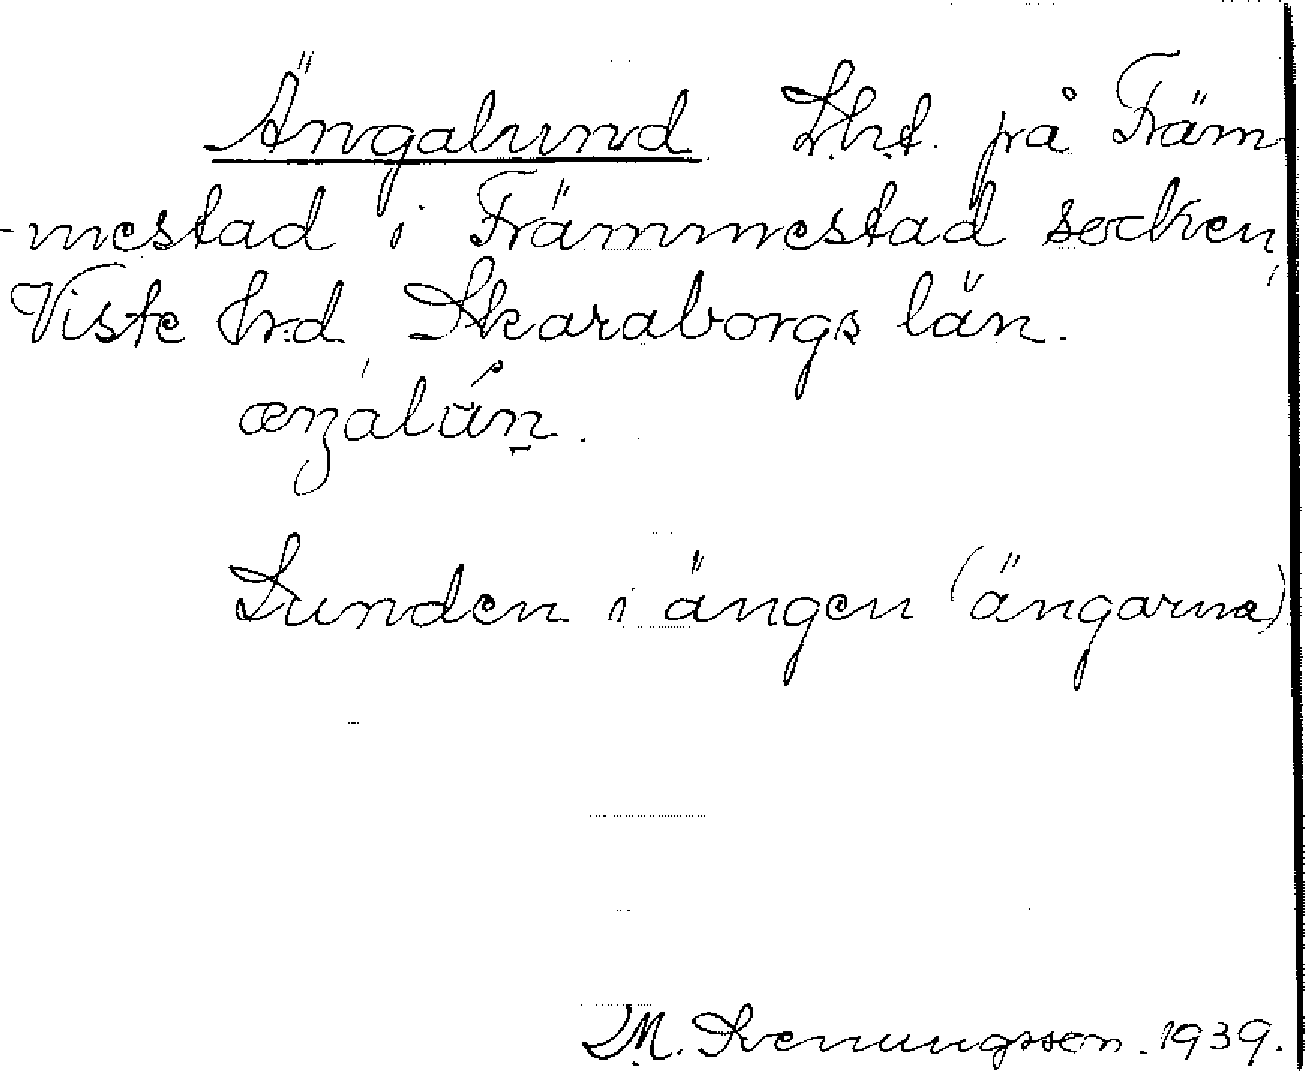 Ängalund Lht. på Främ
-mestad i Främmestad socken,
Viste hrd, Skaraborgs län.
Lunden i ängen (ängarna)
M. Svenungsson. 1939.